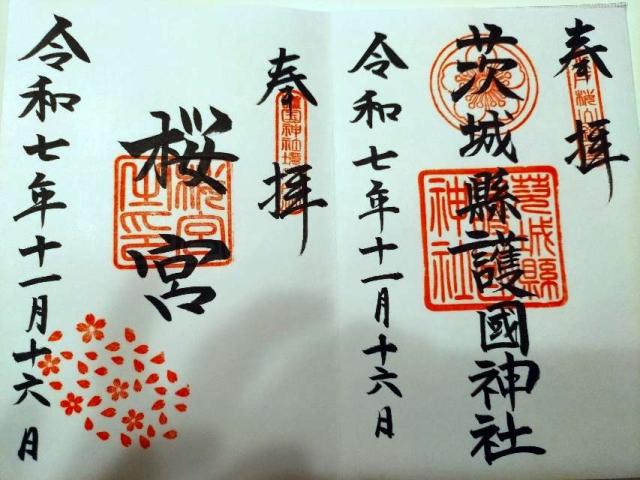 奉拝
茨城縣護國神社
令和七年十一月十六日
奉拝
桜宮
令和七年十一月十六日